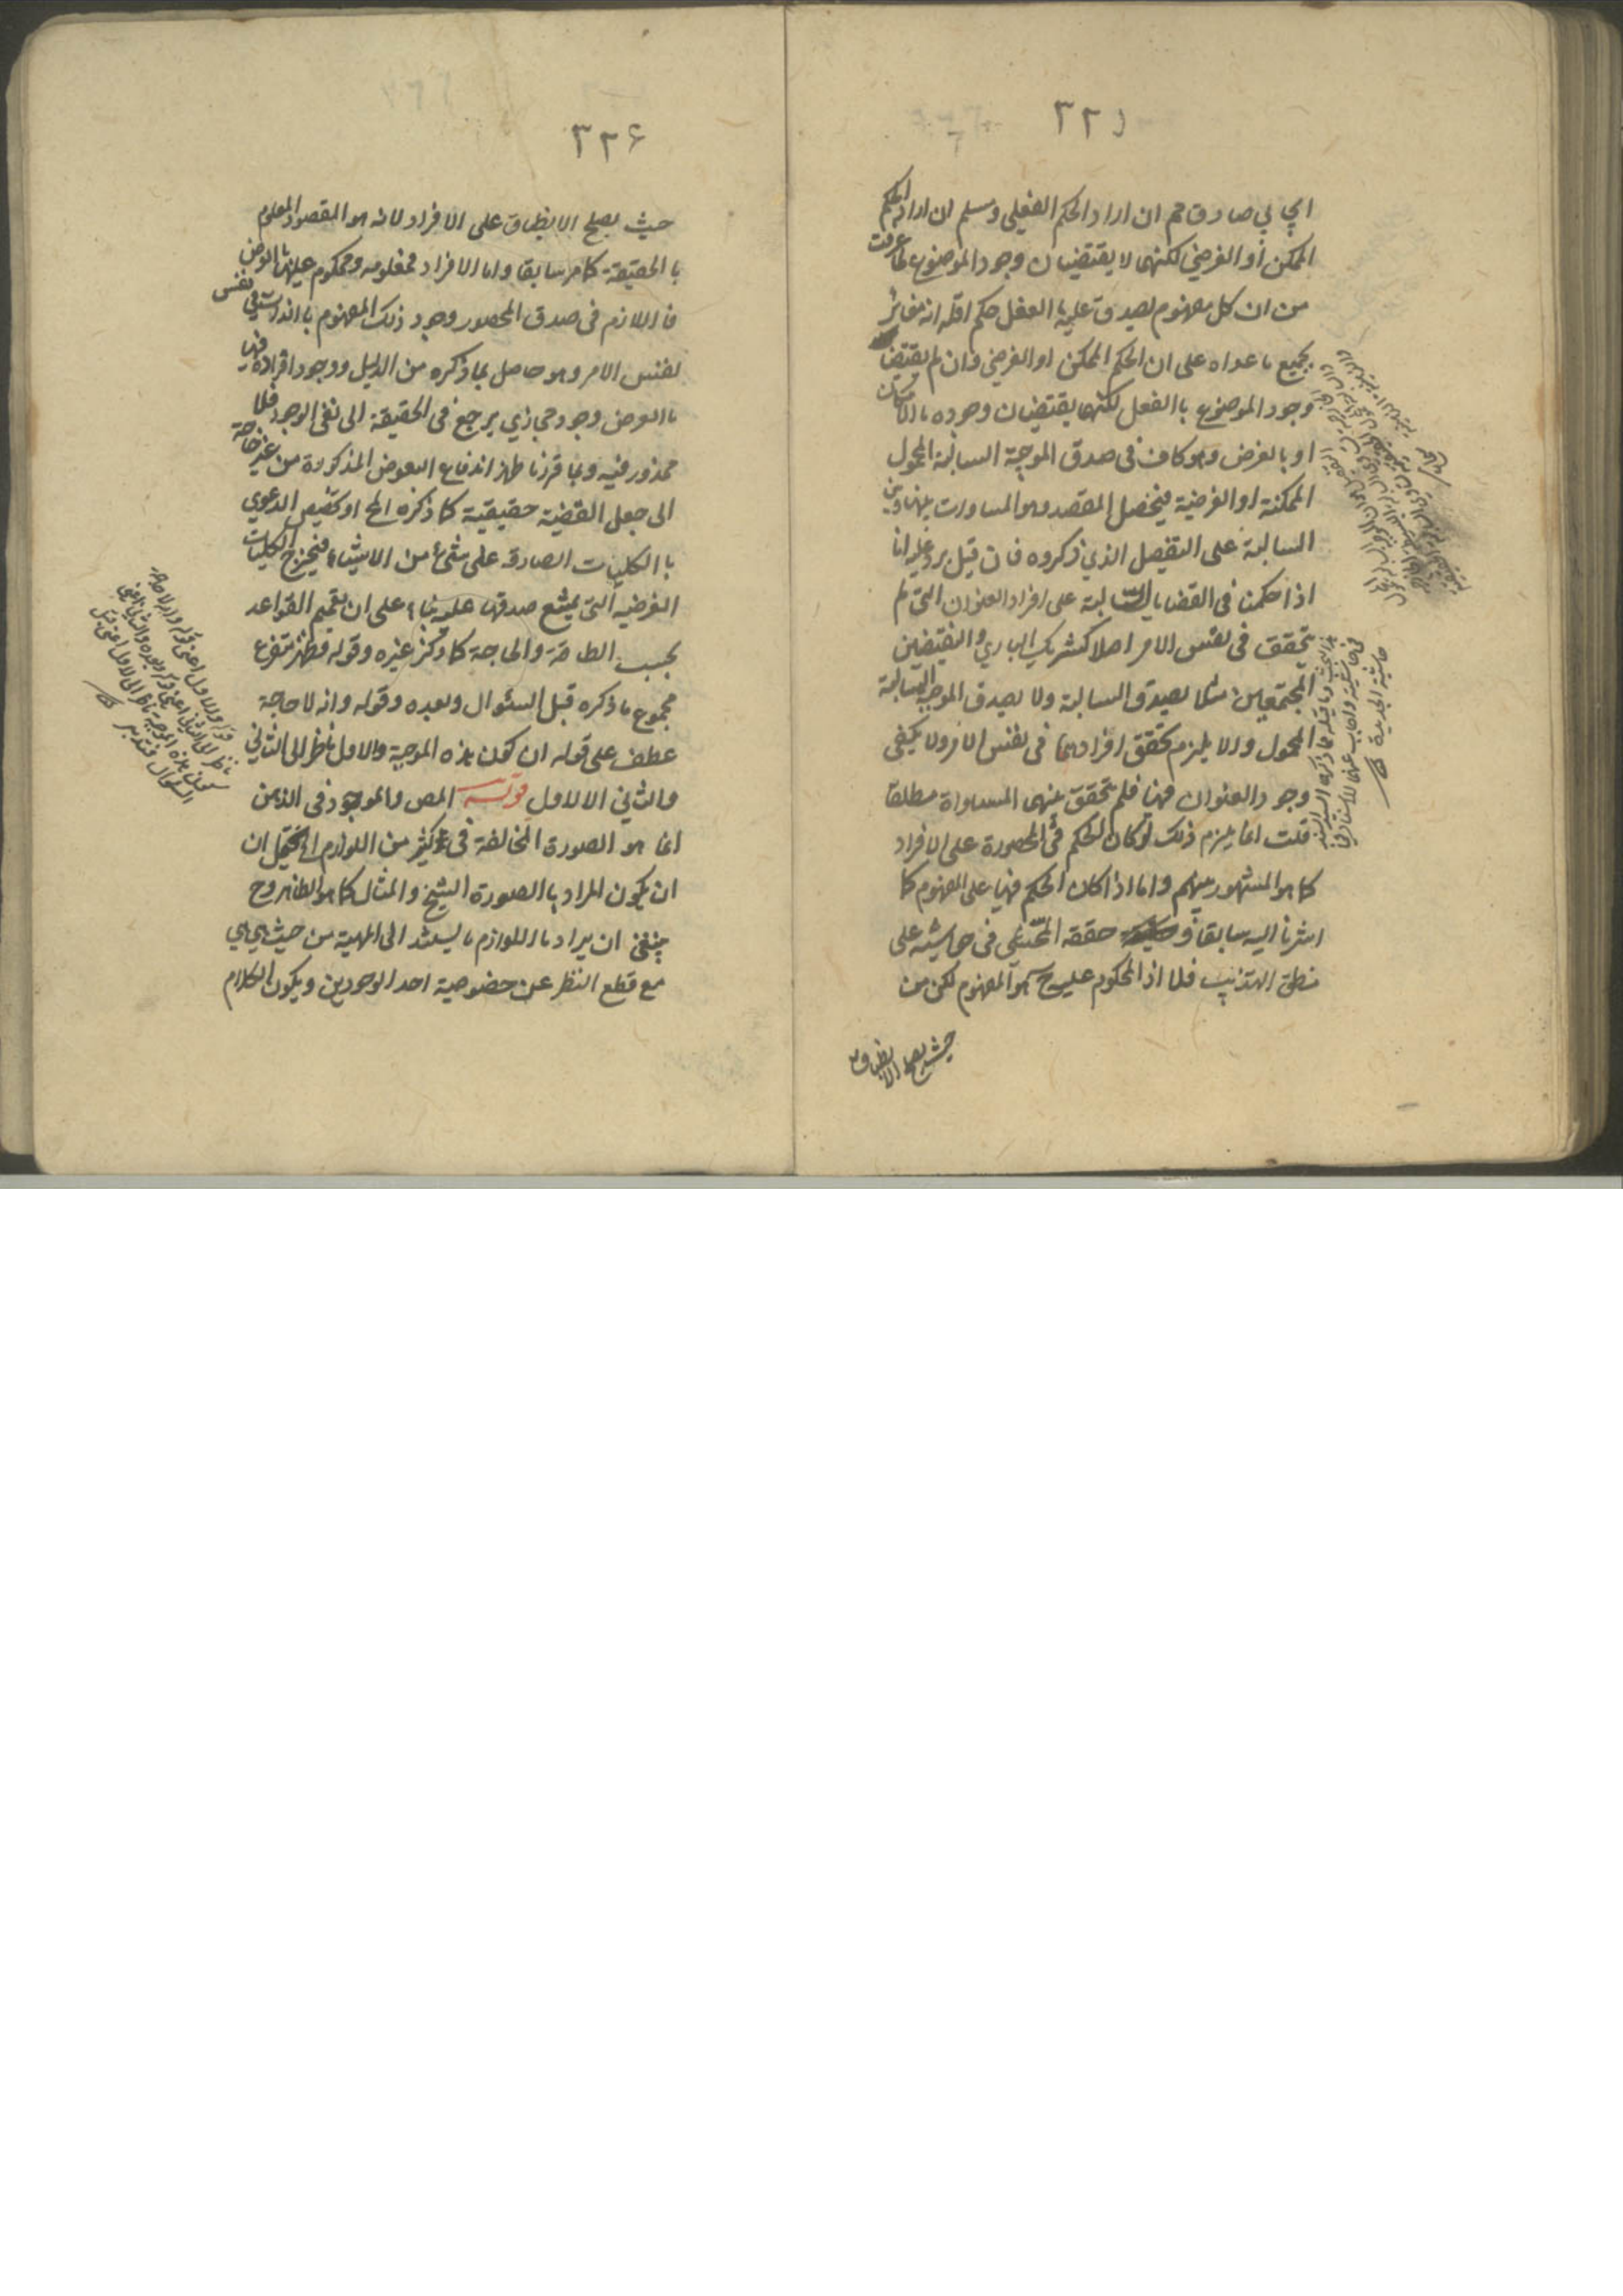 ٣٢٥
ايجابي صادق مم ان اراد الحكم الفعلي ومسلم ان اراد الحكم
الممكن أو الفرضي لكنهما لا يقتضيان وجود الموضوع لما عرفت
من ان كل مفهوم يصدق عليه العقل حكم اقله انه مغائر
بجميع ما عداه على ان الحكم الممكن او الفرضي وان لم يقتضيا
وجود الموضوع باالفعل لكنهما يقتضيان وجوده باالامكان
او بالفرض وهو كاف في صدق الموجبة السالبة المحمول
الممكنة او الفرضية فيحصل المقصد وهو المساوات بينها وبين
السالبة على التفصيل الذي ذكروه فان قيل يرد عليه انا
اذا حكمنا في القضايا السالبة على افراد العنوان التى لم
تحقق في نفس الامر اصلا كشريك الباري والنقيضين
المجتمعين مثلا يصدق السالبة ولا يصدق الموجبة السالبة
المحمول والا يلزم تحقق افرادهما في نفس الامر ولا يكفى
وجود العنوان فيها فلم تحقق بينهما المساواة مطلقا
قلت انما يلزم ذلك لو كان الحكم في المحصورة على الافراد
كما هو المشهور بينهم واما اذا كان الحكم فيها على المفهوم كما
اشرنا اليه سابقا و حققه المحشي في حاشيته على
منطق التهذيب فلا اذ المحكوم عليه ح هو المفهوم لكن من
حيث يصلح الانطباق
٣٢٦
حيث يصلح الانطباق على الافراد لانه هو المقصود المعلوم
باالحقيقة كما مر سابقا واما الافراد فمعلومه ومحكوم عليها باالعرض
فااللازم في صدق المحصور وجود ذلك المفهوم باالذات في نفس
لنفس الامر وهو حاصل بما ذكره من الدليل ووجود افراده فيها
باالعرض وجود مجازي يرجع في الحقيقة الى نفى الوجود فلا
محذور فيه وبما قررنا ظهر اندفاع النقوض المذكورة من غير حاجة
الى جعل القضية حقيقية كما ذكره الخ او تخصيص الدعوي
باالكليات الصادقه على شئ من الاشياء فيخرج الكليات
الفرضيه التى يمتنع صدقها عليه بناء على ان تعميم القواعد
بحسب الطاقة والحاجة كما ذكر غيره وقوله فظهر متفرع
مجموع ما ذكره قبل السئوال وبعده وقوله وانه لا حاجة
عطف على قوله ان كون هذه الموجبة والاول ناظر الى الثاني
والثاني الا للاول قوله المص والموجود في الذهن
انما هو الصورة المخالفة في كثير من اللوازم الخ يحتمل ان
ان يكون المراد باالصورة الشبح والمثال كما هو الظاهر وح
ينبغى ان يراد بااللوازم ما يستند الى المهية من حيث هي هي
مع قطع النظر عن خصوصية احد الوجودين ويكون الكلام